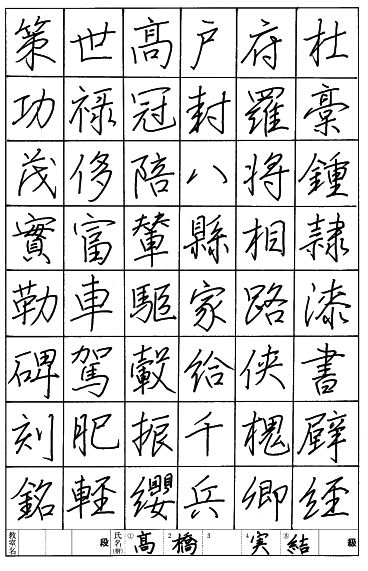 杜稾鍾隷漆書壁経
府羅将相路侠槐卿
戸封八縣家給千兵
髙冠陪輦驅轂振纓
世禄侈富車駕肥軽
策功茂實勒碑刻銘
教室名 段 氏名 ① 髙 2 橋 3 4 実 ⑤ 結 級